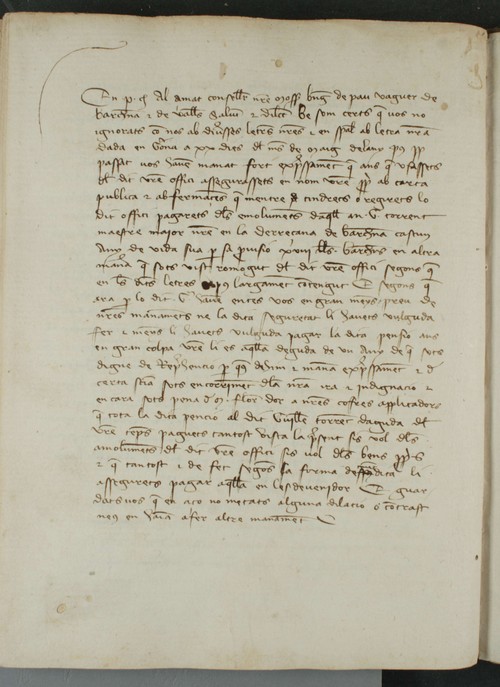 En p. &c Al amat consell nre moss bng de pau vaguer de
barchna & de valls Salut & dilect Be som certs que vos no
ignorats co nos ab diverses letres nres & en spal ab letra nra
dada en Gona a xx dies del mes de maig delany
passat vos havem manat fort expressament que ans que usassets
del dit vre offici assegurassets en nom vre ppi ab carta
publica & ab fermances que mentre tindrets o regirets lo
dit offici pagarets dels emoluments daqll an G torrent
maestre major nre en la derrecana de barchna cascun
Any de vida sua p sa provisio lls barchns en altra
manera que fots vist romogut del dit vre offici segons que
en les dites letres largament contengut E segons que
ara p lo dit G havem entes vos en gran menyspreu de
nres manaments ne la dita seguretat li havets vulguda
fer & menys li havets vulguda pagar la dita pensio ans
en gran colpa vra li es aqlla deguda de un Any de que sots
digne de reprehencio p ço dehim & manam expressament & de
certa scia sots encorriment dela nra ira & indignacio &
encara sots pena de flor dor a nres cofres applicadors
que tota la dita pencio al dit Guille torrent daguda del
vre temps paguets tantost vista la psent sis vol dels
amoluments del dit vre offici sis vol dels bens ppis
& que tantost & de fet segons la forma dessus dita li
assegurets pagar aqlla en lesdevenidor E guar
dats vos que en aço no metats alguna dilacio o contrast
neus en haia afer altre manament